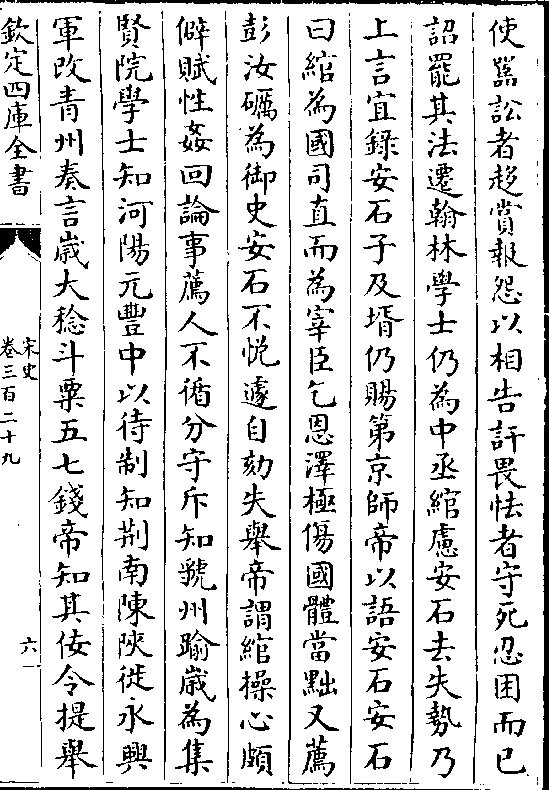 使嚚訟者趍賞報怨以相告訐畏怯者守死忍困而已
詔罷其法遷翰林學士仍為中丞綰慮安石去失勢乃
上言宜錄安石子及壻仍賜第京師帝以語安石安石
曰綰為國司直而為宰臣乞恩澤極傷國體當黜又薦
彭汝礪為御史安石不悅遽自劾失舉帝謂綰操心頗
僻賦性姦回論事薦人不循分守斥知虢州踰嵗為集
賢院學士知河陽元豐中以待制知荆南陳陜徙永興
軍改青州奏言嵗大稔斗粟五七錢帝知其佞令提舉
欽定四庫全書
宋史
卷三百二十九
六